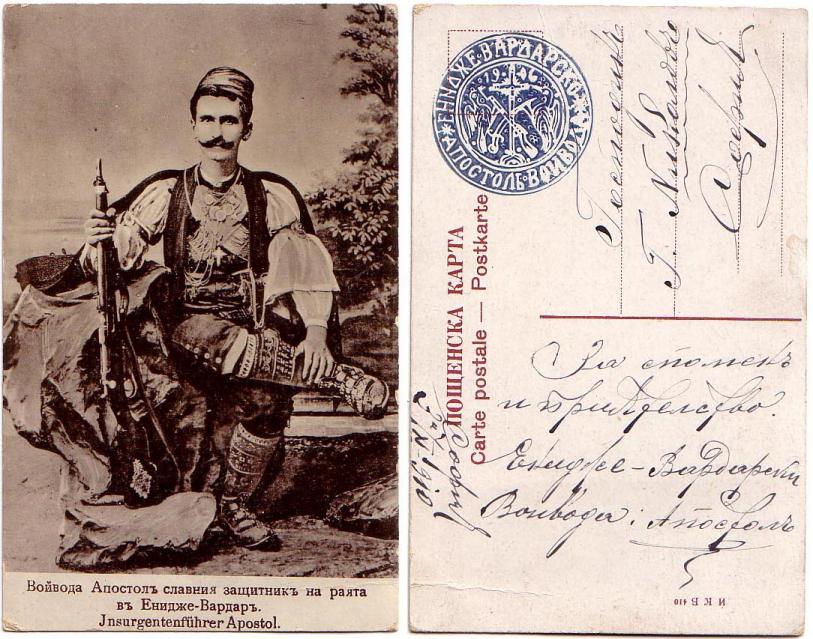 Войвода Апостолъ славния защитникъ на раята
въ Енидже-Вардаръ.
Jnsurgentenführer Apostol.
ЕНИДЖЕ·ВАРДАРСКИ
1906
АПОСТОЛЪ·ВОЙВОДА
ПОЩЕНСКА КАРТА
Carte postale — Postkarte
Господинъ
София
За споменъ
и приятелство.
Ениджe-Вардарски
Воивода: Апостолъ
София
И К Б 410